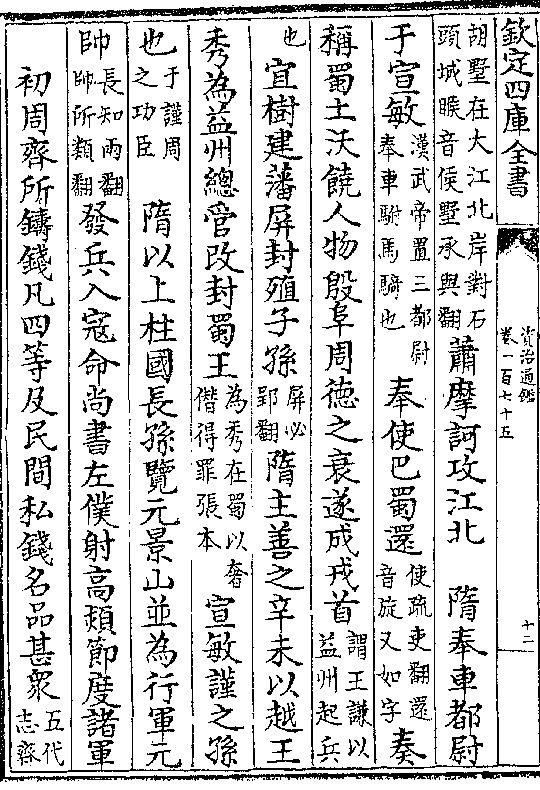 欽定四庫全書
資治通鑑
卷一百七十五
十二
胡墅在大江北岸對石頭城䁙音侯墅承與翻 蕭摩訶攻江北 隋奉車都尉
于宣敏漢武帝置三都尉奉車駙馬騎也 奉使巴蜀還使疏吏翻還音旋又如字奏
稱蜀土沃饒人物殷阜周德之衰遂成戎首謂王謙以益州起兵
也宜樹建藩屏封殖子孫屏必郢翻隋主善之辛未以越王
秀為益州總管改封蜀王為秀在蜀以奢僭得罪張本 宣敏謹之孫
也于謹周之功臣 隋以上柱國長孫覽元景山並為行軍元
帥長知兩翻帥所類翻發兵入寇命尚書左僕射高熲節度諸軍
初周齊所鑄錢凡四等及民間私錢名品甚衆五代志齊